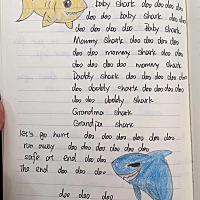 Baby shark doo doo doo
doo doo baby shark doo doo
doo doo doo doo Baby shark
Mommy shark doo doo doo doo
doo doo mommy shark doo doo
doo doo doo doo mommy shark
Daddy shark doo doo doo doo
doo daddy shark doo doo doo doo
doo doo daddy shark
Grandma shark
Grandpa shark
let's go hunt doo doo doo doo doo
run away doo doo doo doo doo
safe at end doo doo
The end doo doo doo
doo doo doo